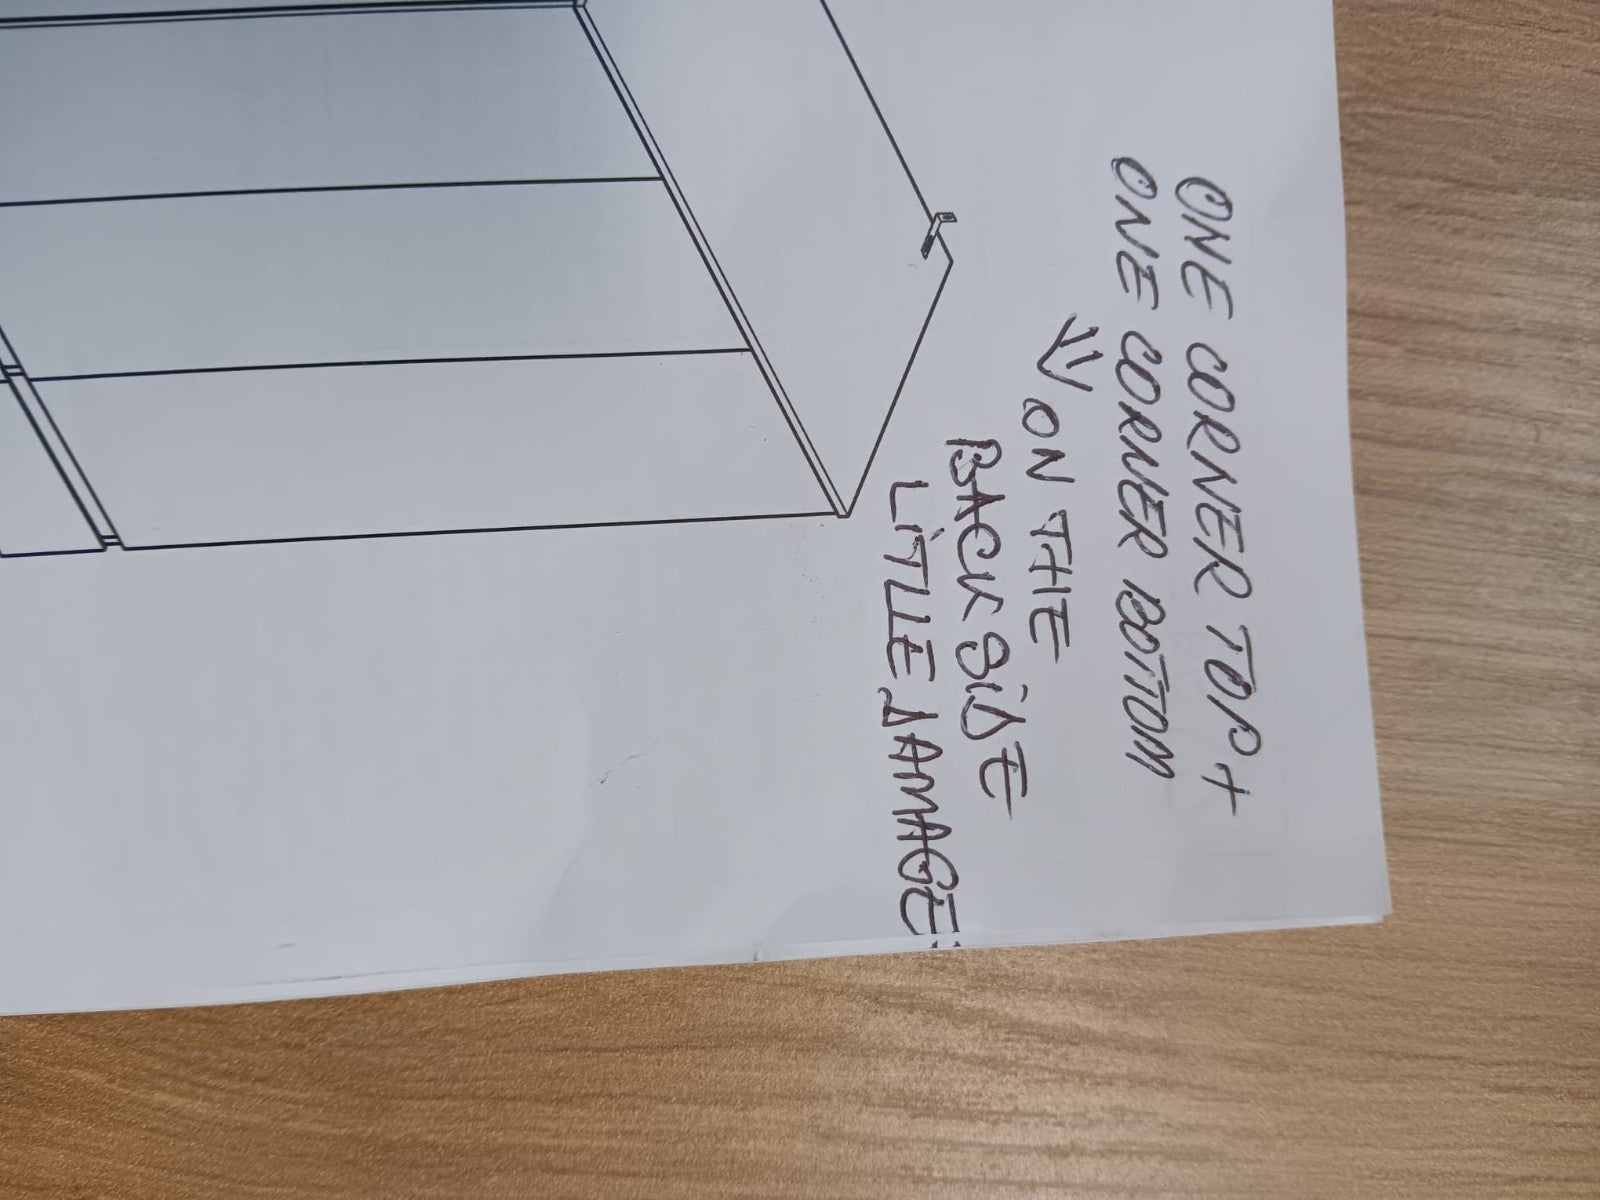 ONE CORNER TOP +
ONE CORNER BOTTOM
ON THE
BACK SIDE
LITLLE DAMAGE.